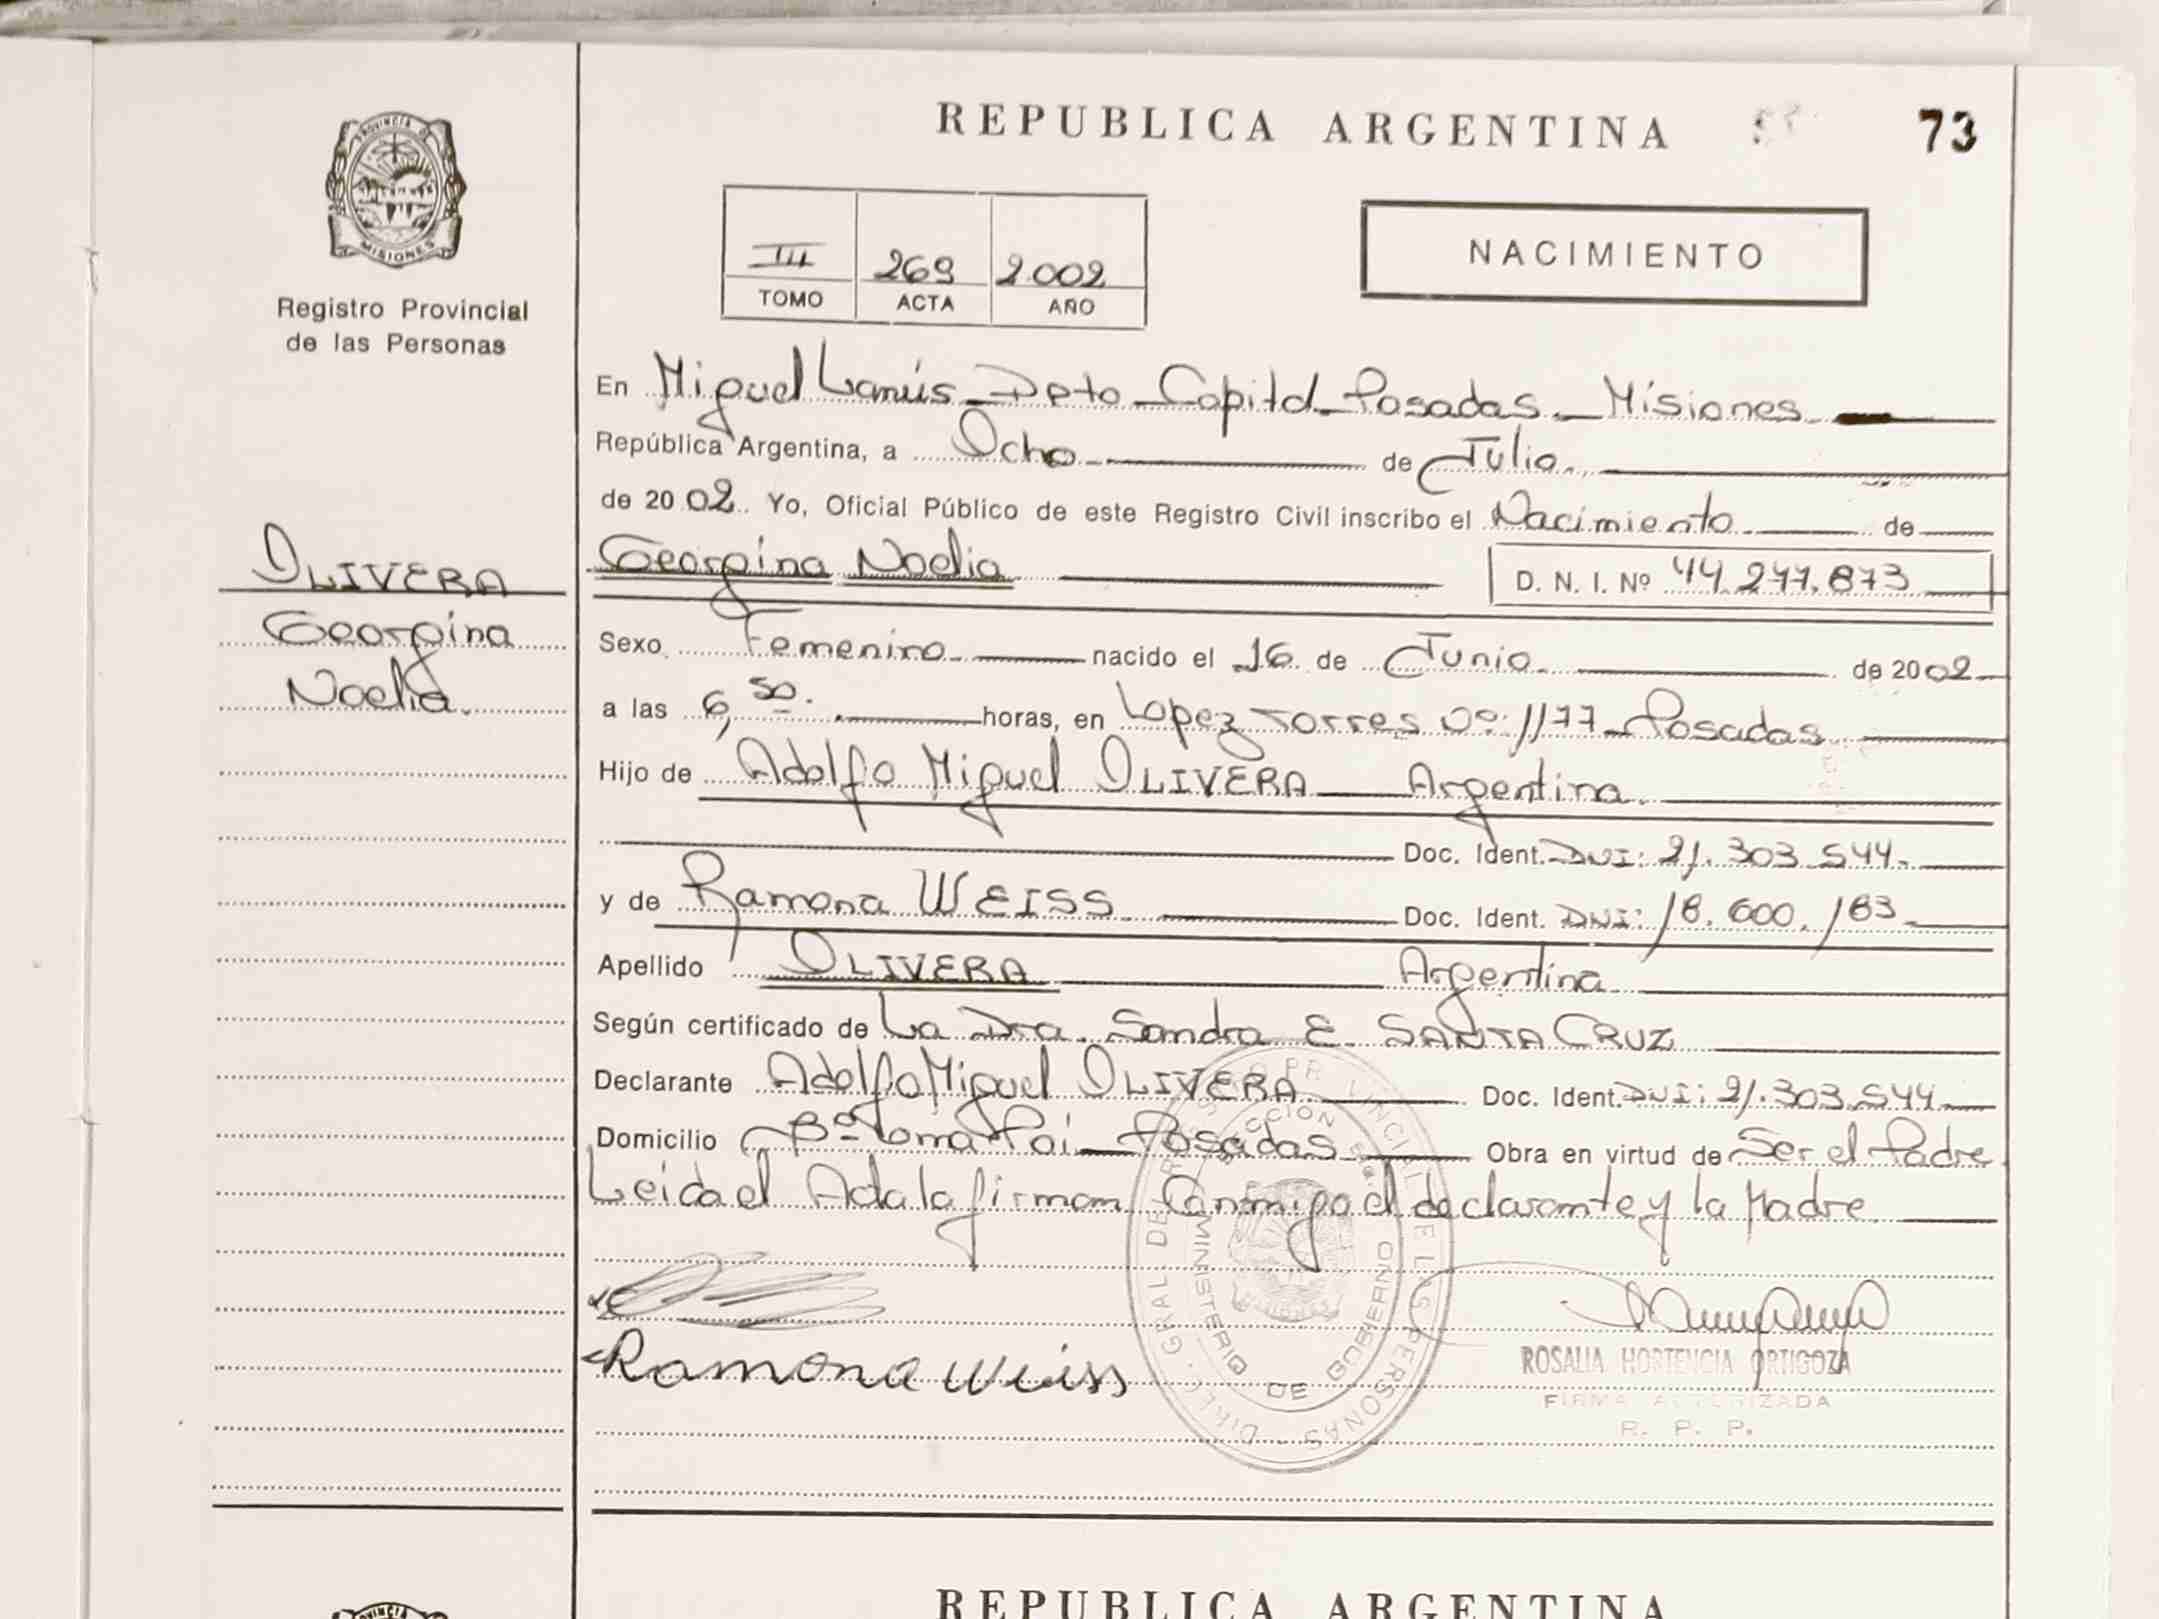 REPUBLICA ARGENTINA
73
PROVINCIA DE
MISIONES
Registro Provincial
de las Personas
III 269 2.002
TOMO ACTA AÑO
NACIMIENTO
En Miguel Lanús Dpto Capital Posadas Misiones
República Argentina, a Ocho de Julio
de 2002 Yo, Oficial Público de este Registro Civil inscribo el Nacimiento de
OLIVERA
Georgina
Noelia.
Georgina Noelia
D. N. I. Nº 44.277.873
Sexo Femenino nacido el 16 de Junio de 2002
a las 6,50. horas, en Lopez Torres nº: 1177 Posadas
Hijo de Adolfo Miguel OLIVERA Argentina
Doc. Ident. DNI: 21.303.544
y de Ramona WEISS Doc. Ident. DNI: 18.600.183
Apellido OLIVERA Argentina
Según certificado de La Dra. Sandra E. SANTA CRUZ
Declarante Adolfo Miguel OLIVERA Doc. Ident. DNI: 21.303.544
Domicilio Bº Loma Poi Posadas Obra en virtud de Ser el Padre
Leida el Acta la firman Conmigo el declarante y la Madre
Ramona Weiss
MINISTERIO DE GOBIERNO
ROSALIA HORTENCIA ORTIGOZA
FIRMA AUTORIZADA
R. P. P.
REPUBLICA ARGENTINA